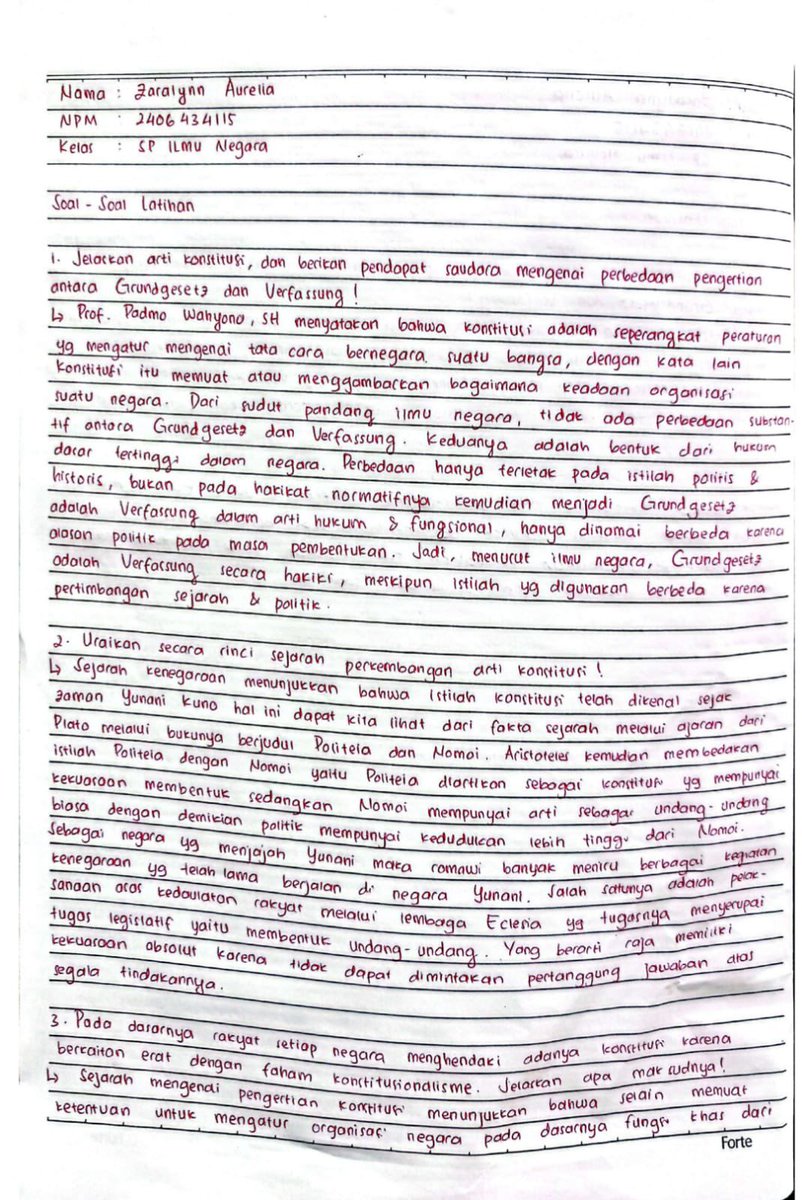 Nama : Zaralynn Aurelia
NPM : 2406434115
Kelas : SP Ilmu Negara
Soal - Soal Latihan
1. Jelaskan arti konstitusi, dan berikan pendapat saudara mengenai perbedaan pengertian
antara Grundgesetz dan Verfassung !
↳ Prof. Padmo Wahyono, SH menyatakan bahwa konstitusi adalah seperangkat peraturan
yg mengatur mengenai tata cara bernegara suatu bangsa, dengan kata lain
konstitusi itu memuat atau menggambarkan bagaimana keadaan organisasi
suatu negara. Dari sudut pandang ilmu negara, tidak ada perbedaan substan-
tif antara Grundgesetz dan Verfassung. Keduanya adalah bentuk dari hukum
dasar tertinggi dalam negara. Perbedaan hanya terletak pada istilah politis &
historis, bukan pada hakikat normatifnya kemudian menjadi Grundgesetz
adalah Verfassung dalam arti hukum & fungsional, hanya dinamai berbeda karena
alasan politik pada masa pembentukan. Jadi, menurut ilmu negara, Grundgesetz
adalah Verfassung secara hakiki, meskipun istilah yg digunakan berbeda karena
pertimbangan sejarah & politik.
2. Uraikan secara rinci sejarah perkembangan arti konstitusi !
↳ Sejarah kenegaraan menunjukkan bahwa istilah konstitusi telah dikenal sejak
zaman Yunani kuno hal ini dapat kita lihat dari fakta sejarah melalui ajaran dari
Plato melalui bukunya berjudul Politeia dan Nomoi. Aristoteles kemudian membedakan
istilah Politeia dengan Nomoi yaitu Politeia diartikan sebagai konstitusi yg mempunyai
kekuasaan membentuk sedangkan Nomoi mempunyai arti sebagai undang-undang
biasa dengan demikian politik mempunyai kedudukan lebih tinggi dari Nomoi.
Sebagai negara yg menjajah Yunani maka romawi banyak meniru berbagai kegiatan
kenegaraan yg telah lama berjalan di negara Yunani. Salah satunya adalah pelak-
sanaan asas kedaulatan rakyat melalui lembaga Eclesia yg tugasnya menyerupai
tugas legislatif yaitu membentuk undang-undang. Yang berarti raja memiliki
kekuasaan absolut karena tidak dapat dimintakan pertanggung jawaban atas
segala tindakannya.
3. Pada dasarnya rakyat setiap negara menghendaki adanya konstitusi karena
berkaitan erat dengan faham konstitusionalisme. Jelaskan apa maksudnya!
↳ Sejarah mengenai pengertian konstitusi menunjukkan bahwa selain memuat
ketentuan untuk mengatur organisasi negara pada dasarnya fungsi khas dari
Forte